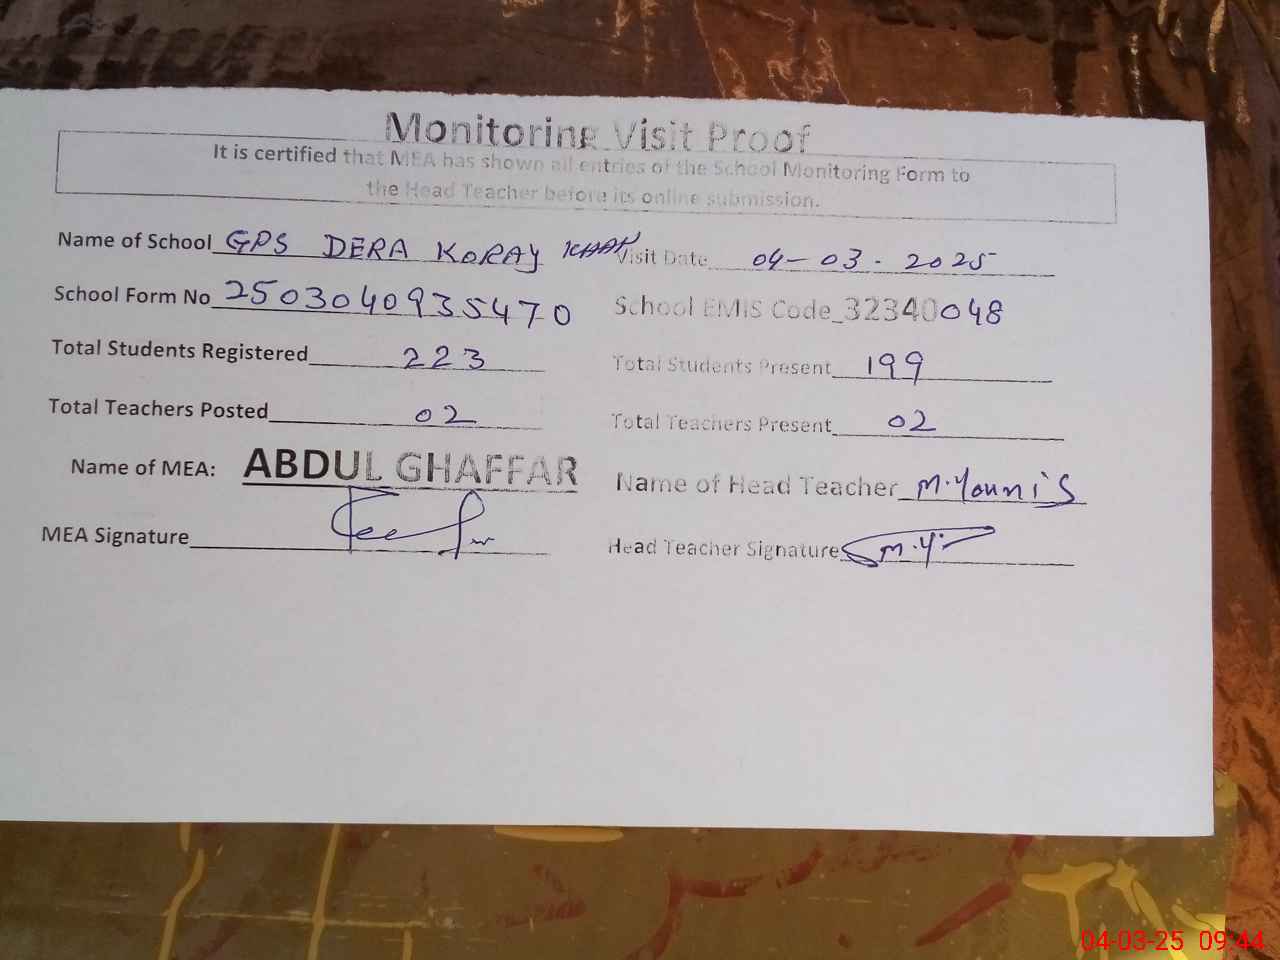 Monitoring Visit Proof
It is certified that MEA has shown all entries of the School Monitoring Form to
the Head Teacher before its online submission.
Name of School GPS DERA KORAY KHAN Visit Date 04-03-2025
School Form No 2503040935470 School EMIS Code_32340048
Total Students Registered 223 Total Students Present 199
Total Teachers Posted 02 Total Teachers Present 02
Name of MEA: ABDUL GHAFFAR Name of Head Teacher M.Younis
MEA Signature Head Teacher Signature M.Y
04-03-25 09:44